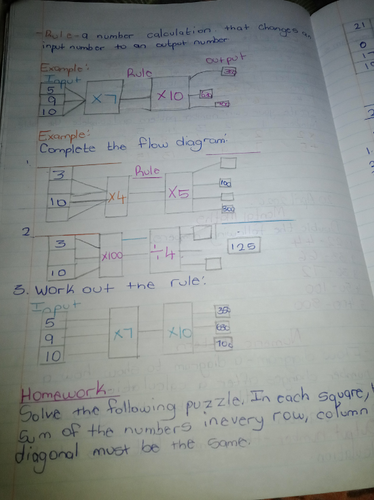 - Rule - a number calculation that changes
input number to an output number
Example:
Input Rule output
5
9 ×7 ×10
10
Example:
Complete the flow diagram:
1. Rule
3
×4 ×5
10
2.
3 ×100 ÷4 125
10
3. Work out the rule:
Input
5
9 ×7 ×10
10
Homework
Solve the following puzzle. In each square,
sum of the numbers in every row, column
diagonal must be the same.
21
0
1